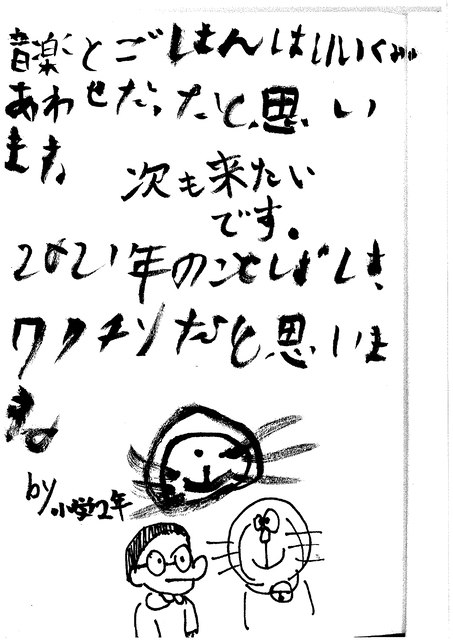 音楽とごはんはいいくみ
あわせだったと思い
ます。
次も来たい
です。
2021年のことばは、
ワクチンだと思いま
す。
by小学2年